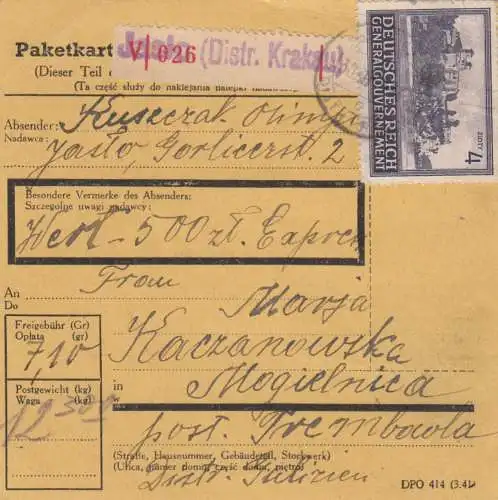 Paketkart
Jasło (Distr. Krakau)
V 026
(Dieser Teil
(Ta część służy do naklejania nalepek
DEUTSCHES REICH
GENERALGOUVERNEMENT
4 ZŁOTY
Absender:
Nadawca:
Kuszczak Olimpia
Jasło, Gorlicerst. 2
Besondere Vermerke des Absenders:
Szczególne uwagi nadawcy:
Wert - 500 zł. Express
An
Do
Frau
Marja
Kaczanowska
in
w
Mogielnica
post. Trembowla
Freigebühr (Gr)
Opłata (gr)
7,10
Postgewicht (kg)
Waga (kg)
12 500
(Straße, Hausnummer, Gebäudeteil, Stockwerk)
(Ulica, numer domu, część domu, piętro)
Distr. Galizien
DPO 414 (3.41)